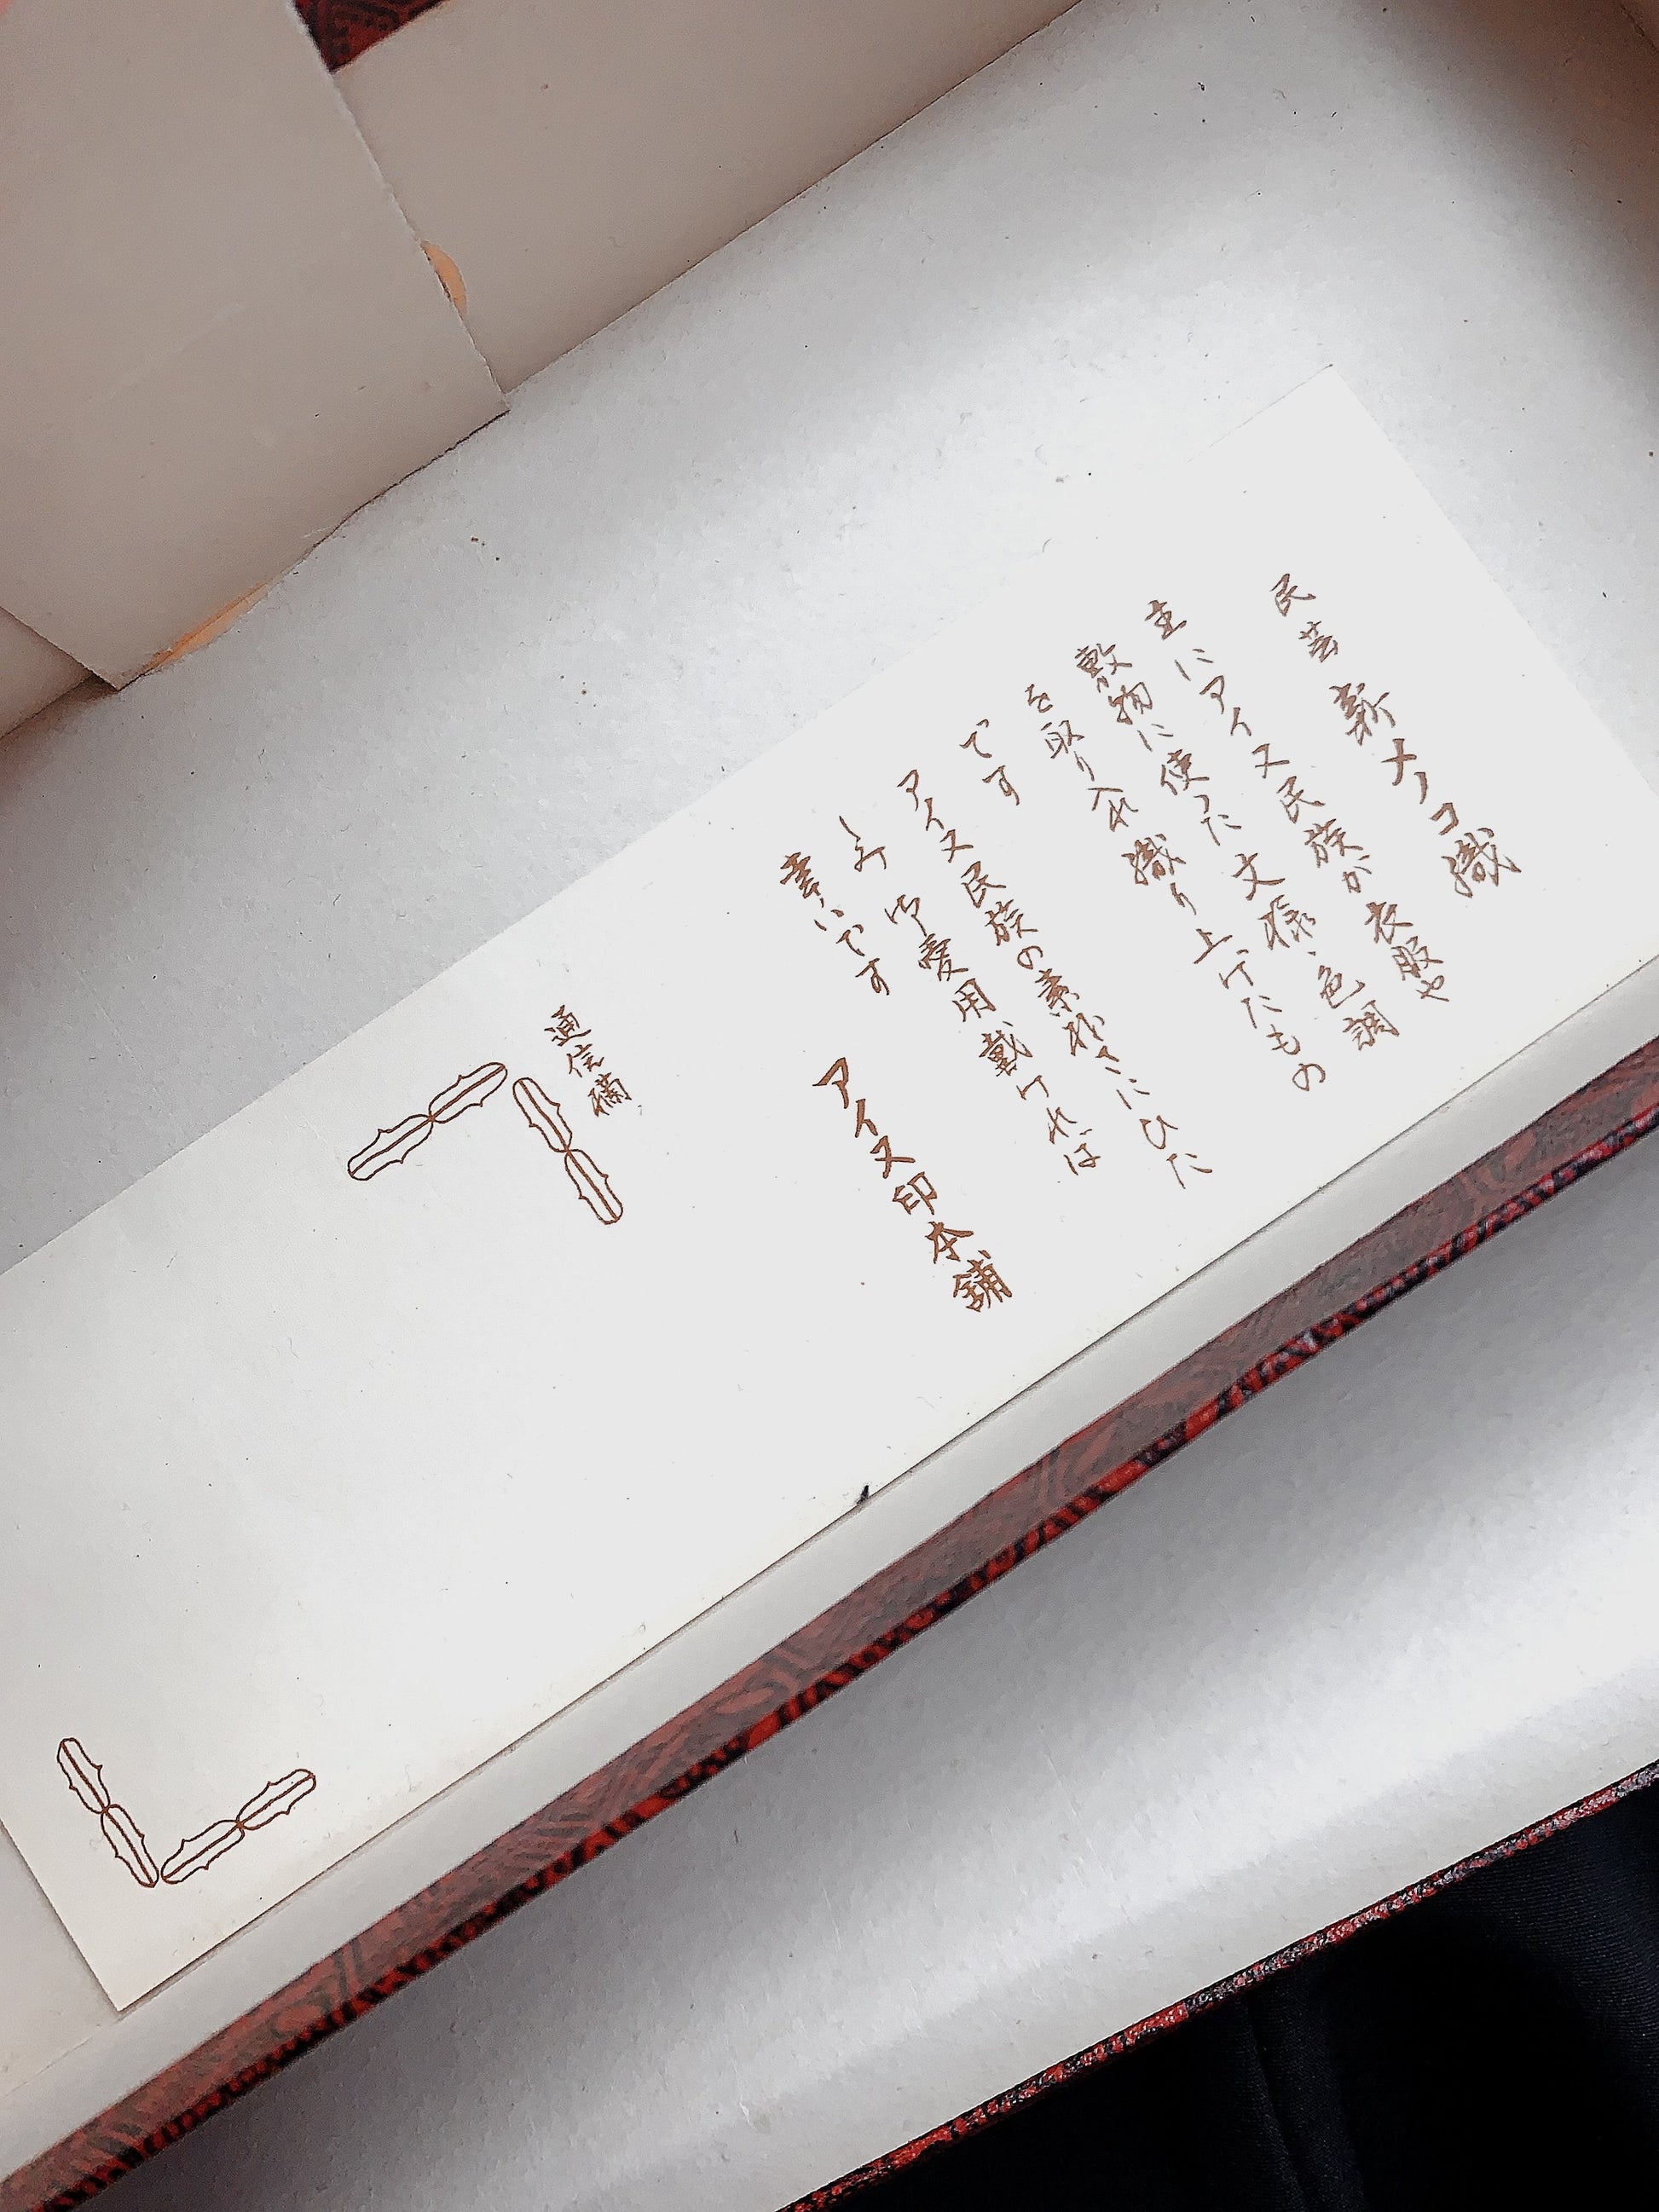 民芸 新メノコ織
主にアイヌ民族が衣服や
敷物に使った文様、色調
を取り入れ織り上げたもの
です
アイヌ民族の素朴さにひた
りみ 御愛用戴ければ
幸いです
アイヌ印本舗
通信欄